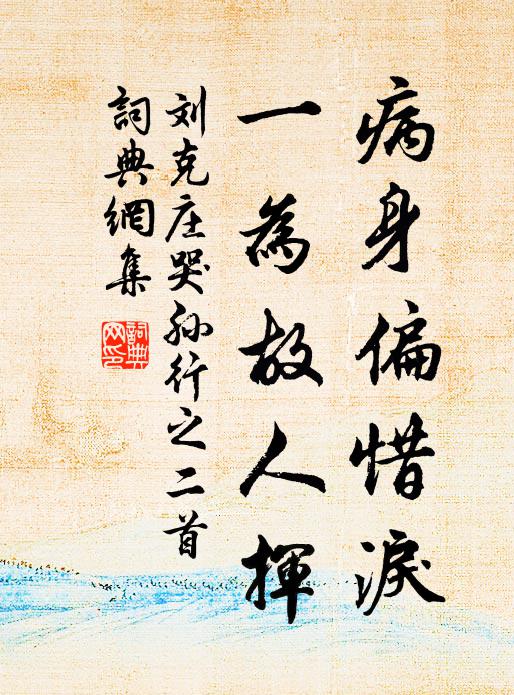 病身偏惜淚
一為故人揮
刘克庄哭孙行之二首
詞典網集
詞典
网印